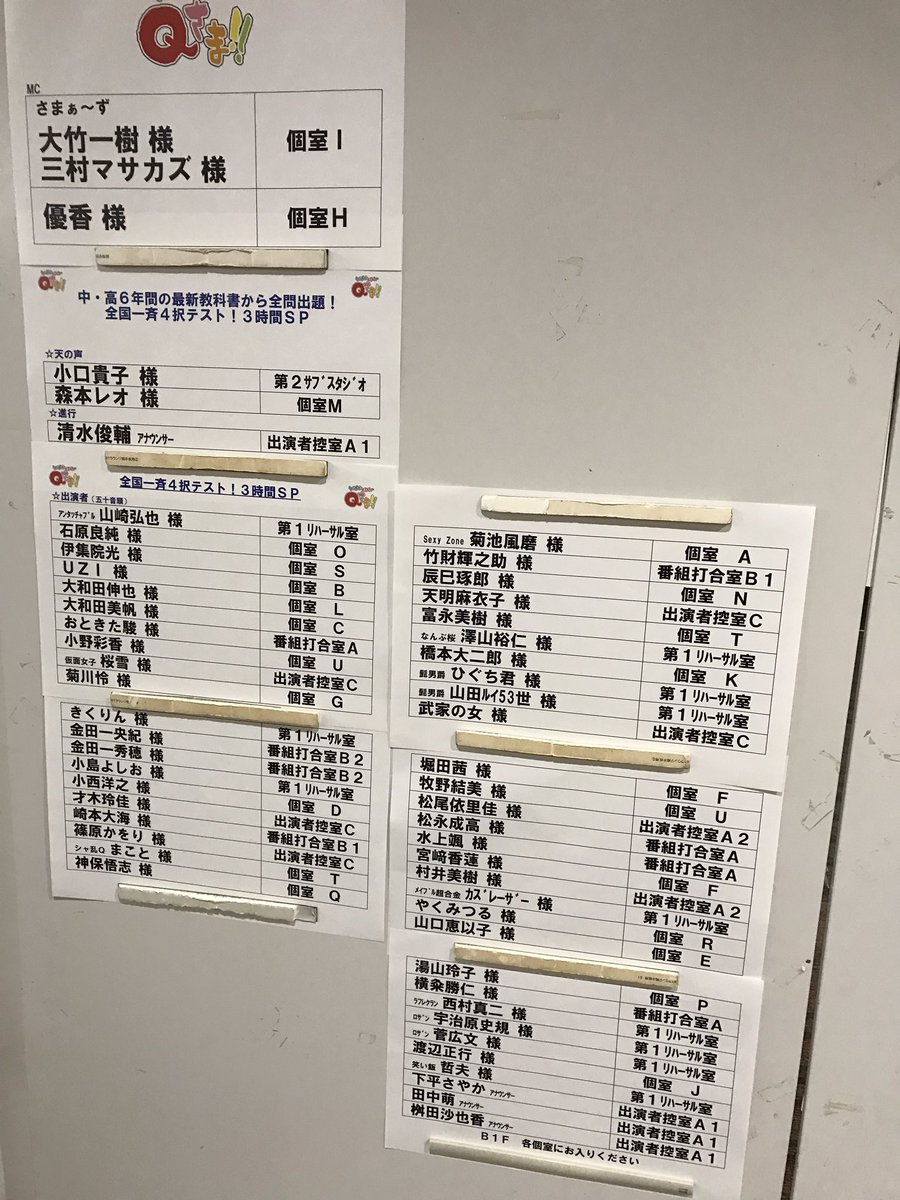 Qさま!!
MC
さまぁ～ず
大竹一樹 様
三村マサカズ 様
個室I
優香 様 個室H
Qさま!! Qさま!!
中・高６年間の最新教科書から全問出題！
全国一斉４択テスト！３時間ＳＰ
☆天の声
小口貴子 様 第２ｻﾌﾞｽﾀｼﾞｵ
森本レオ 様 個室M
☆進行
清水俊輔 ｱﾅｳﾝｻｰ 出演者控室Ａ１
Qさま!! Qさま!!
全国一斉４択テスト！３時間ＳＰ
☆出演者（五十音順）
ｱﾝﾀｯﾁｬﾌﾞﾙ 山崎弘也 様 第１ﾘﾊｰｻﾙ室
石原良純 様 個室 O
伊集院光 様 個室 S
ＵＺＩ 様 個室 B
大和田伸也 様 個室 L
大和田美帆 様 個室 C
おときた駿 様 番組打合室A
小野彩香 様 個室 U
仮面女子 桜雪 様 出演者控室C
菊川怜 様 個室 G
きくりん 様 第１ﾘﾊｰｻﾙ室
金田一央紀 様 番組打合室Ｂ２
金田一秀穂 様 番組打合室Ｂ２
小島よしお 様 第１ﾘﾊｰｻﾙ室
小西洋之 様 個室 D
才木玲佳 様 出演者控室C
崎本大海 様 番組打合室Ｂ１
篠原かをり 様 出演者控室C
シャ乱Q まこと 様 個室 T
神保悟志 様 個室 Q
Sexy Zone 菊池風磨 様 個室 A
竹財輝之助 様 番組打合室Ｂ１
辰巳琢郎 様 個室 N
天明麻衣子 様 出演者控室C
富永美樹 様 個室 T
なんぶ桜 澤山裕仁 様 第１ﾘﾊｰｻﾙ室
橋本大二郎 様 個室 K
髭男爵 ひぐち君 様 第１ﾘﾊｰｻﾙ室
髭男爵 山田ルイ53世 様 第１ﾘﾊｰｻﾙ室
武家の女 様 出演者控室C
堀田茜 様 個室 F
牧野結美 様 個室 U
松尾依里佳 様 出演者控室Ａ２
松永成高 様 番組打合室A
水上颯 様 番組打合室A
宮﨑香蓮 様 個室 F
村井美樹 様 出演者控室Ａ２
ﾒｲﾌﾟﾙ超合金 ｶｽﾞﾚｰｻﾞｰ 様 第１ﾘﾊｰｻﾙ室
やくみつる 様 個室 R
山口恵以子 様 個室 E
湯山玲子 様 個室 P
横粂勝仁 様 番組打合室A
ﾗﾌﾚｸﾗﾝ 西村真二 様 第１ﾘﾊｰｻﾙ室
ﾛｻﾞﾝ 宇治原史規 様 第１ﾘﾊｰｻﾙ室
ﾛｻﾞﾝ 菅広文 様 第１ﾘﾊｰｻﾙ室
渡辺正行 様 個室 J
笑い飯 哲夫 様 第１ﾘﾊｰｻﾙ室
下平さやか ｱﾅｳﾝｻｰ 出演者控室Ａ１
田中萌 ｱﾅｳﾝｻｰ 出演者控室Ａ１
桝田沙也香 ｱﾅｳﾝｻｰ 出演者控室Ａ１
Ｂ１Ｆ 各個室にお入りください